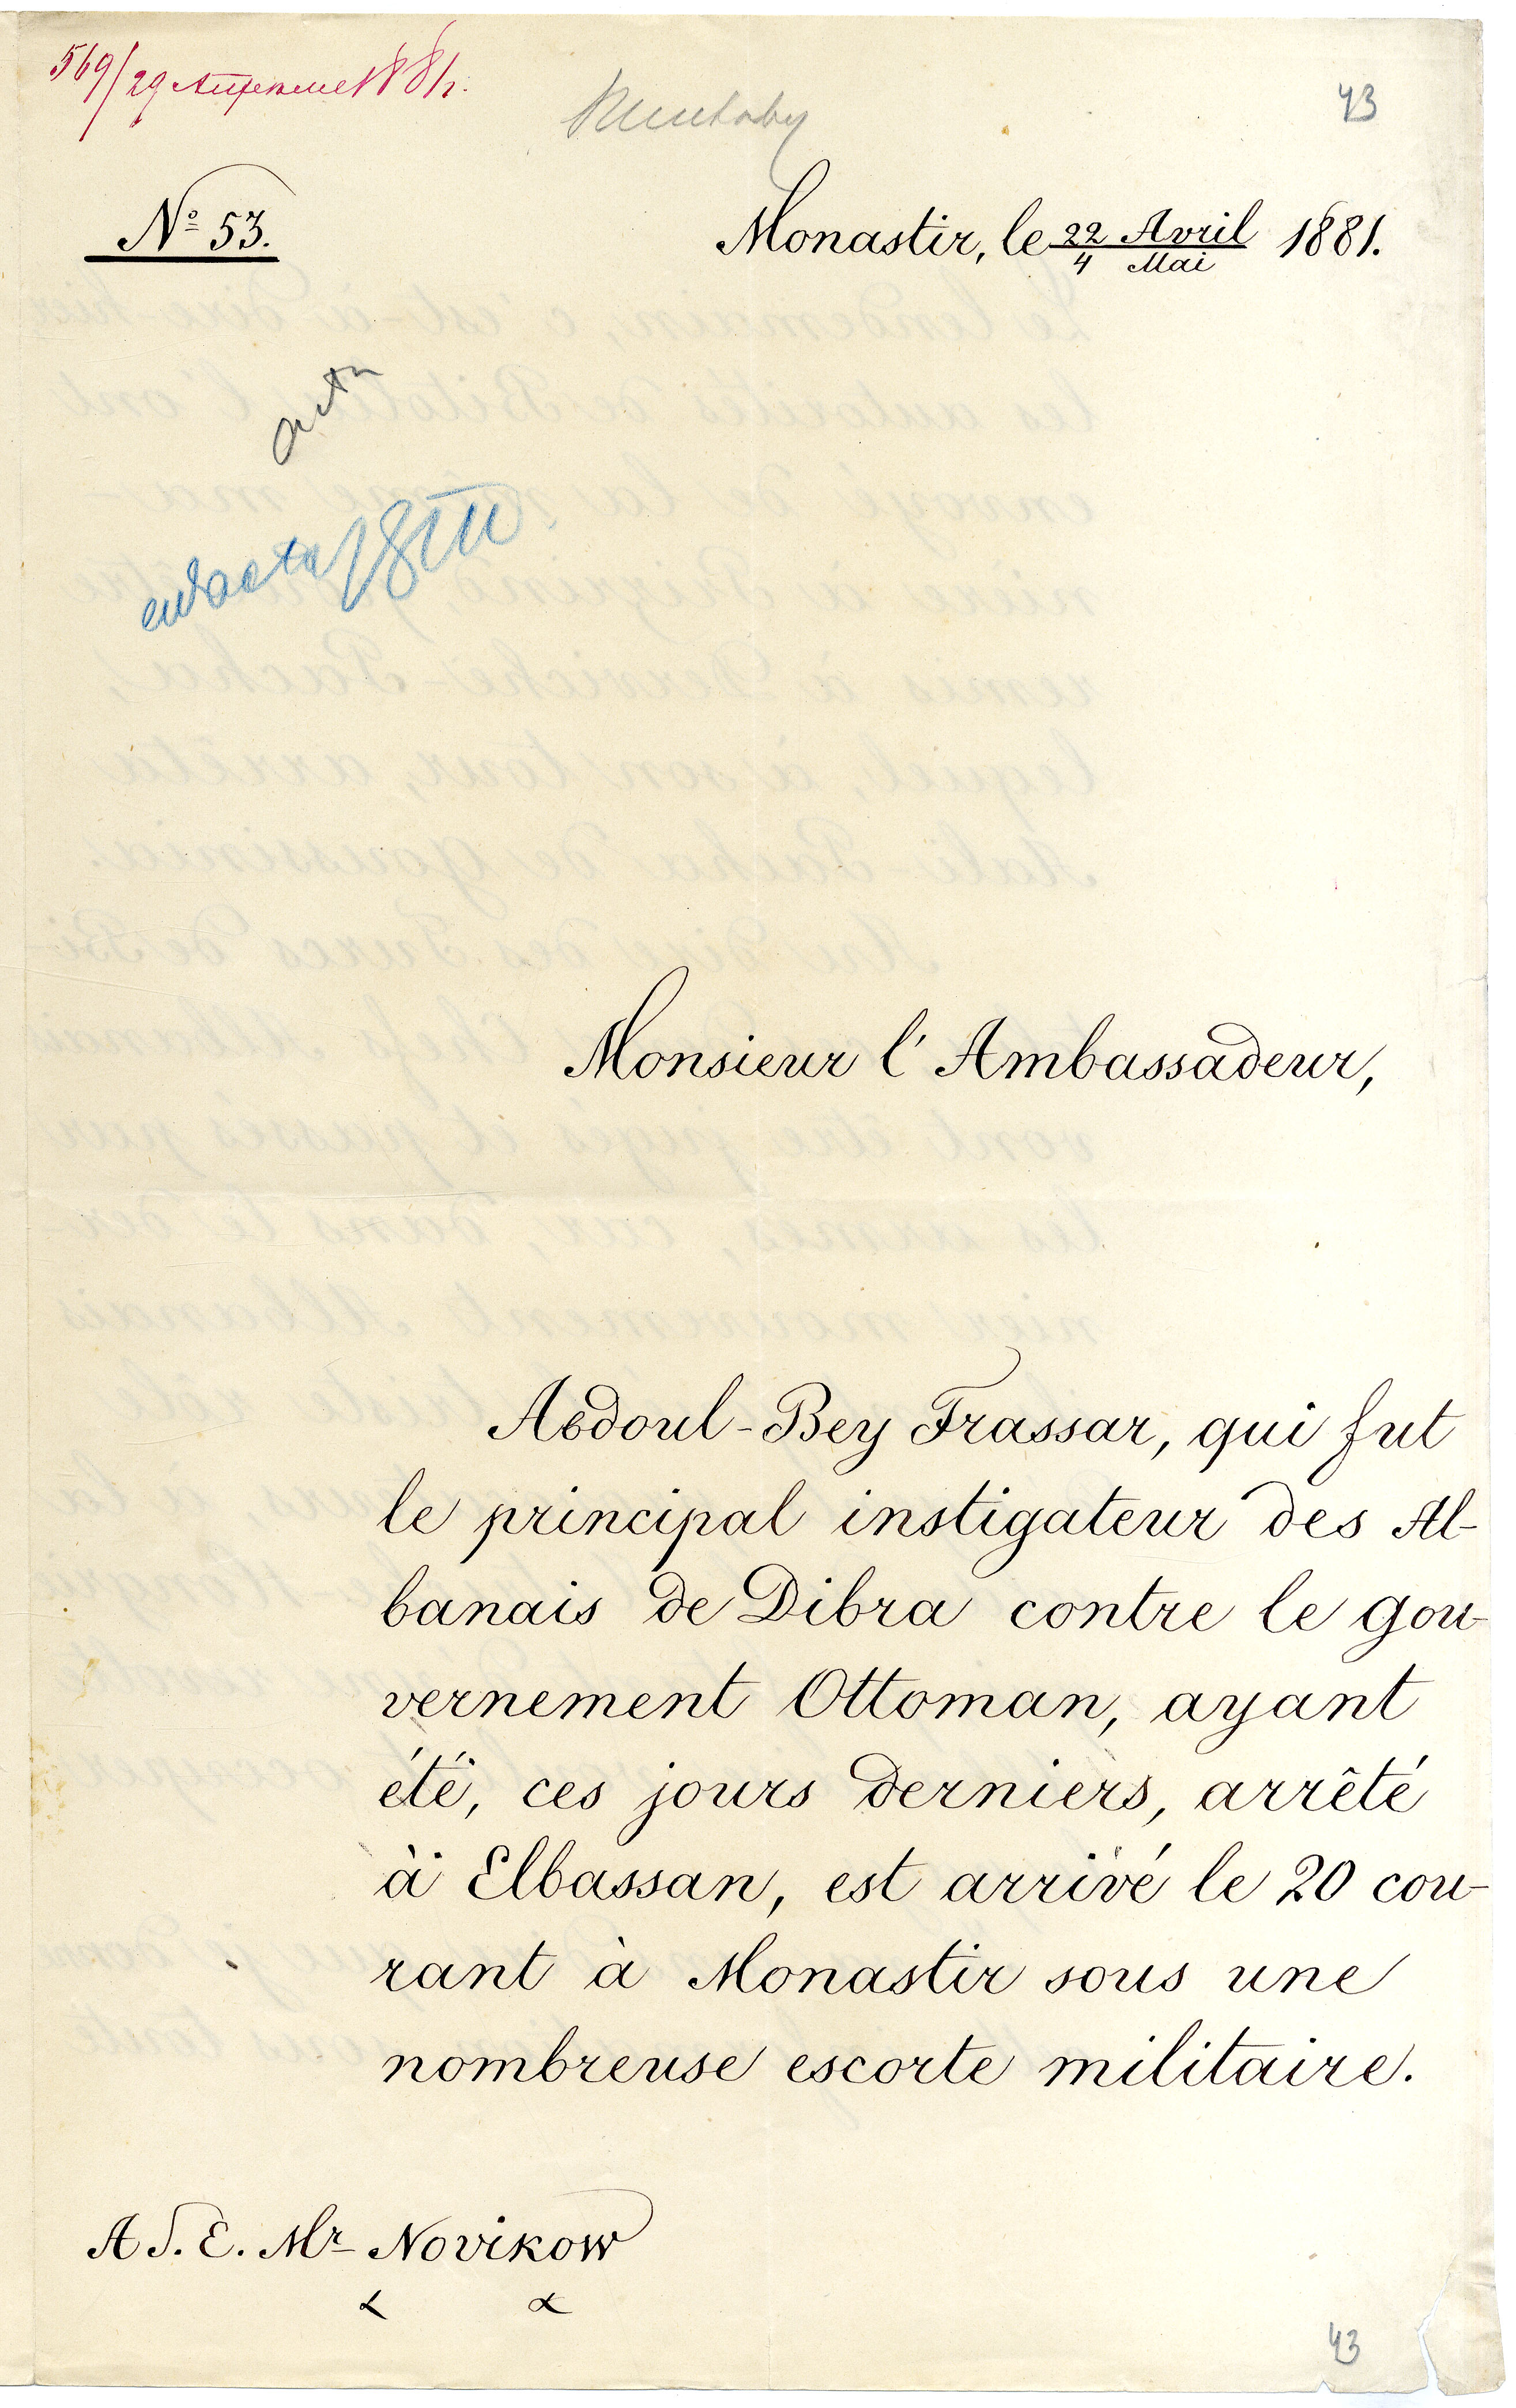 569/29 Апреля 1881 г.
43
№ 53.
Monastir, le 22 Avril / 4 Mai 1881.
acta
ad acta
Monsieur l'Ambassadeur,
Abdoul-Bey Frassar, qui fut
le principal instigateur des Al-
banais de Dibra contre le gou-
vernement Ottoman, ayant
été, ces jours derniers, arrêté
à Elbassan, est arrivé le 20 cou-
rant à Monastir sous une
nombreuse escorte militaire.
A S. E. Mr Novikow
43